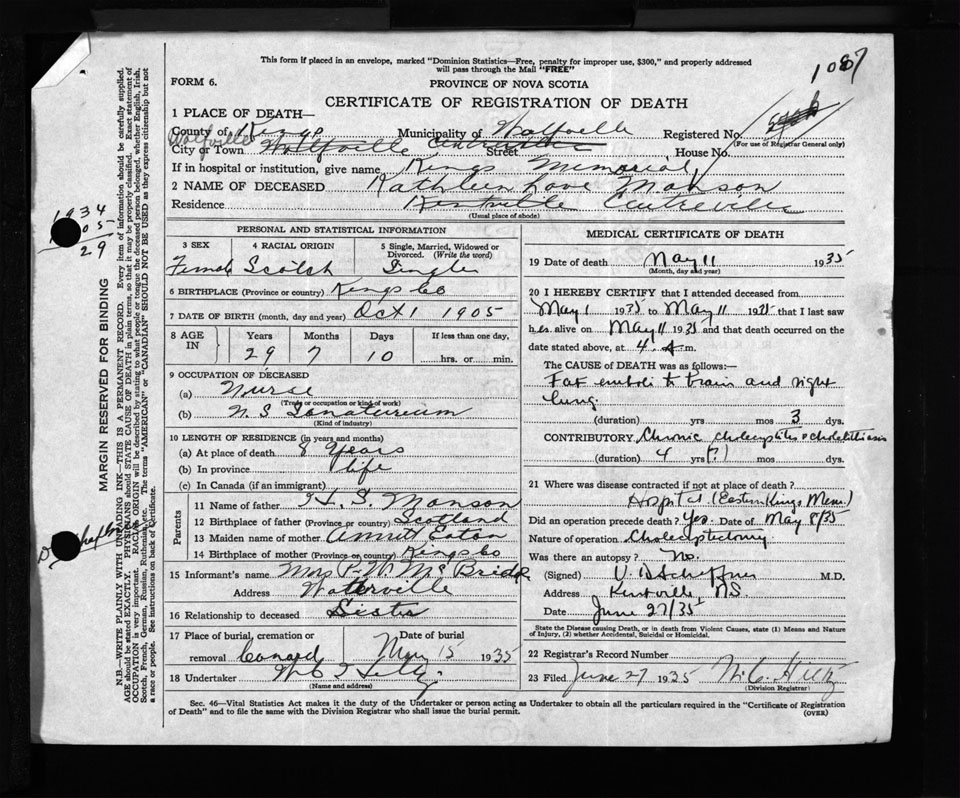 This form if placed in an envelope, marked "Dominion Statistics—Free, penalty for improper use, $300," and properly addressed
will pass through the Mail "FREE"
1087
FORM 6.
PROVINCE OF NOVA SCOTIA
CERTIFICATE OF REGISTRATION OF DEATH
1 PLACE OF DEATH—
County of Kings Municipality of Wolfville Registered No.
(For use of Registrar General only)
Wolfville
City or Town Wolfville Centreville Street House No.
If in hospital or institution, give name Kings Memorial
2 NAME OF DECEASED Kathleen Love Manson
Residence Kentville Centreville
(Usual place of abode)
PERSONAL AND STATISTICAL INFORMATION
3 SEX 4 RACIAL ORIGIN 5 Single, Married, Widowed or
Divorced. (Write the word)
Female Scotch Single
6 BIRTHPLACE (Province or country) Kings Co
7 DATE OF BIRTH (month, day and year) Oct 1 1905
8 AGE IN Years Months Days If less than one day,
29 7 10 hrs. or min.
9 OCCUPATION OF DECEASED
(a) Nurse
(Trade or occupation or kind of work)
(b) N.S Sanatorium
(Kind of industry)
10 LENGTH OF RESIDENCE (in years and months)
(a) At place of death 8 Years
(b) In province life
(c) In Canada (if an immigrant)
Parents
11 Name of father H. S. Manson
12 Birthplace of father (Province or country) Scotland
13 Maiden name of mother Eaton
14 Birthplace of mother (Province or country) Kings Co
15 Informant's name Mrs P. W. McBride
Address Waterville
16 Relationship to deceased Sister
17 Place of burial, cremation or Date of burial
removal Canard May 15 1935
18 Undertaker
(Name and address)
MEDICAL CERTIFICATE OF DEATH
19 Date of death May 11 1935
(Month, day and year)
20 I HEREBY CERTIFY that I attended deceased from
May 1 1935 to May 11 1935 that I last saw
her alive on May 11 1935 and that death occurred on the
date stated above, at 4. A.m.
The CAUSE OF DEATH was as follows:—
Fat emboli to brain and right
lung.
(duration) yrs mos 3 dys.
CONTRIBUTORY Chronic cholecystitis & cholelithiasis
(duration) 4 yrs (?) mos dys.
21 Where was disease contracted if not at place of death?
Hospital (Eastern Kings Mem.)
Did an operation precede death? Yes. Date of May 8/35
Nature of operation Cholecystectomy
Was there an autopsy? No.
(Signed) M.D.
Address Kentville NS.
Date June 27/35
State the Disease causing Death, or in death from Violent Causes, state (1) Means and Nature
of Injury, (2) whether Accidental, Suicidal or Homicidal.
22 Registrar's Record Number
23 Filed June 27 1935 M.C.
(Division Registrar)
Sec. 46—Vital Statistics Act makes it the duty of the Undertaker or person acting as Undertaker to obtain all the particulars required in the "Certificate of Registration
of Death" and to file the same with the Division Registrar who shall issue the burial permit. (OVER)
1934
05
29
MARGIN RESERVED FOR BINDING
N.B.—WRITE PLAINLY WITH UNFADING INK—THIS IS A PERMANENT RECORD. Every item of information should be carefully supplied.
AGE should be stated EXACTLY. PHYSICIANS should STATE CAUSE OF DEATH in plain terms, so that it may be properly classified. Exact statement of
OCCUPATION is very important. RACIAL ORIGIN will be described by stating to what people or tongue the deceased person belonged, whether English, Irish,
Scotch, French, German, Russian, Ruthenian, etc. The terms "AMERICAN" or "CANADIAN" SHOULD NOT BE USED as they express citizenship but not
a race or people. See instructions on back of Certificate.